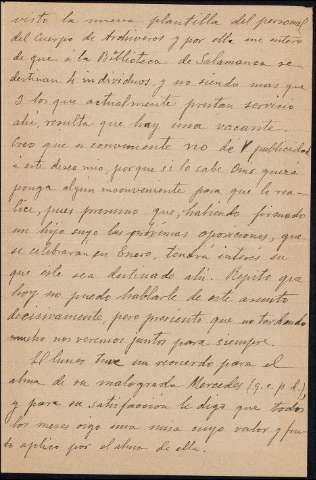 visto la nueva plantilla del personal
del Cuerpo de Archiveros y por ella me entero
de que á la Biblioteca de Salamanca se
destinan 4 individuos, y no siendo mas que
3 los que actualmente prestan servicio
ahí, resulta que hay una vacante.
Creo que es conveniente no dé V publicidad
á este deseo mio, porque si lo sabe Onis quizá
ponga algun inconveniente para que lo rea-
lice, pues presumo que, habiendo firmado
un hijo suyo las próximas oposiciones, que
se celebraran en Enero, tendrá interes en
que este sea destinado ahí. Repito que
hoy no puedo hablarle de este asunto
decisivamente, pero presiento que no tardando
mucho nos veremos juntos para siempre.
El lunes tuve un recuerdo para el
alma de su malograda Mercedes (q.e.p.d.),
y para su satisfacción le digo que todos
los meses oigo una misa cuyo valor y fru-
to aplico por el alma de ella.